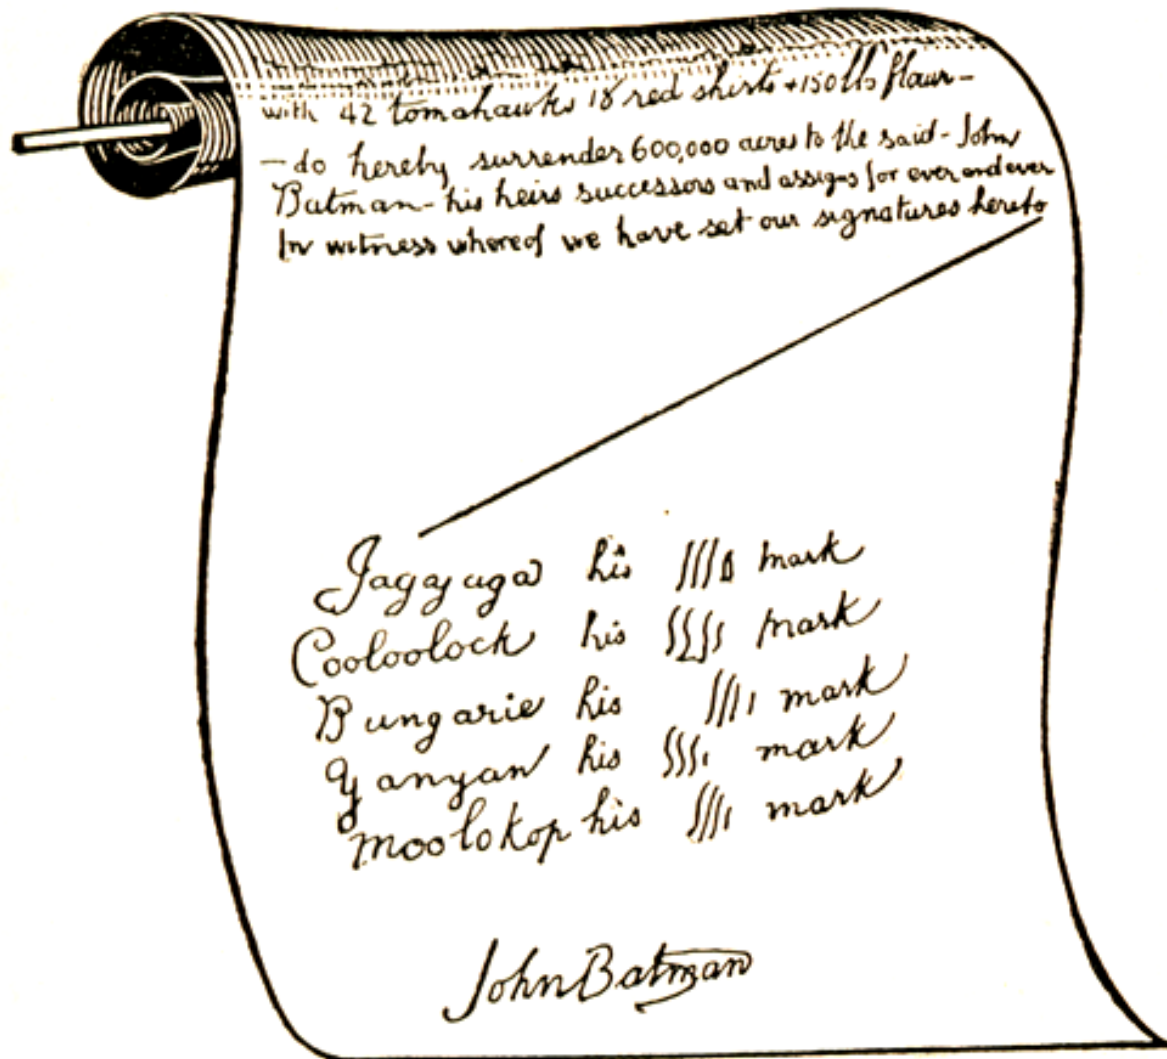 with 42 tomahawks 18 red shirts + 150 lbs flour -
- do hereby surrender 600,000 acres to the said - John
Batman - his heirs successors and assigns for ever and ever
In witness whereof we have set our signatures hereto
Jagajaga his mark
Cooloolock his mark
Bungarie his mark
Yanyan his mark
Moolokop his mark
John Batman